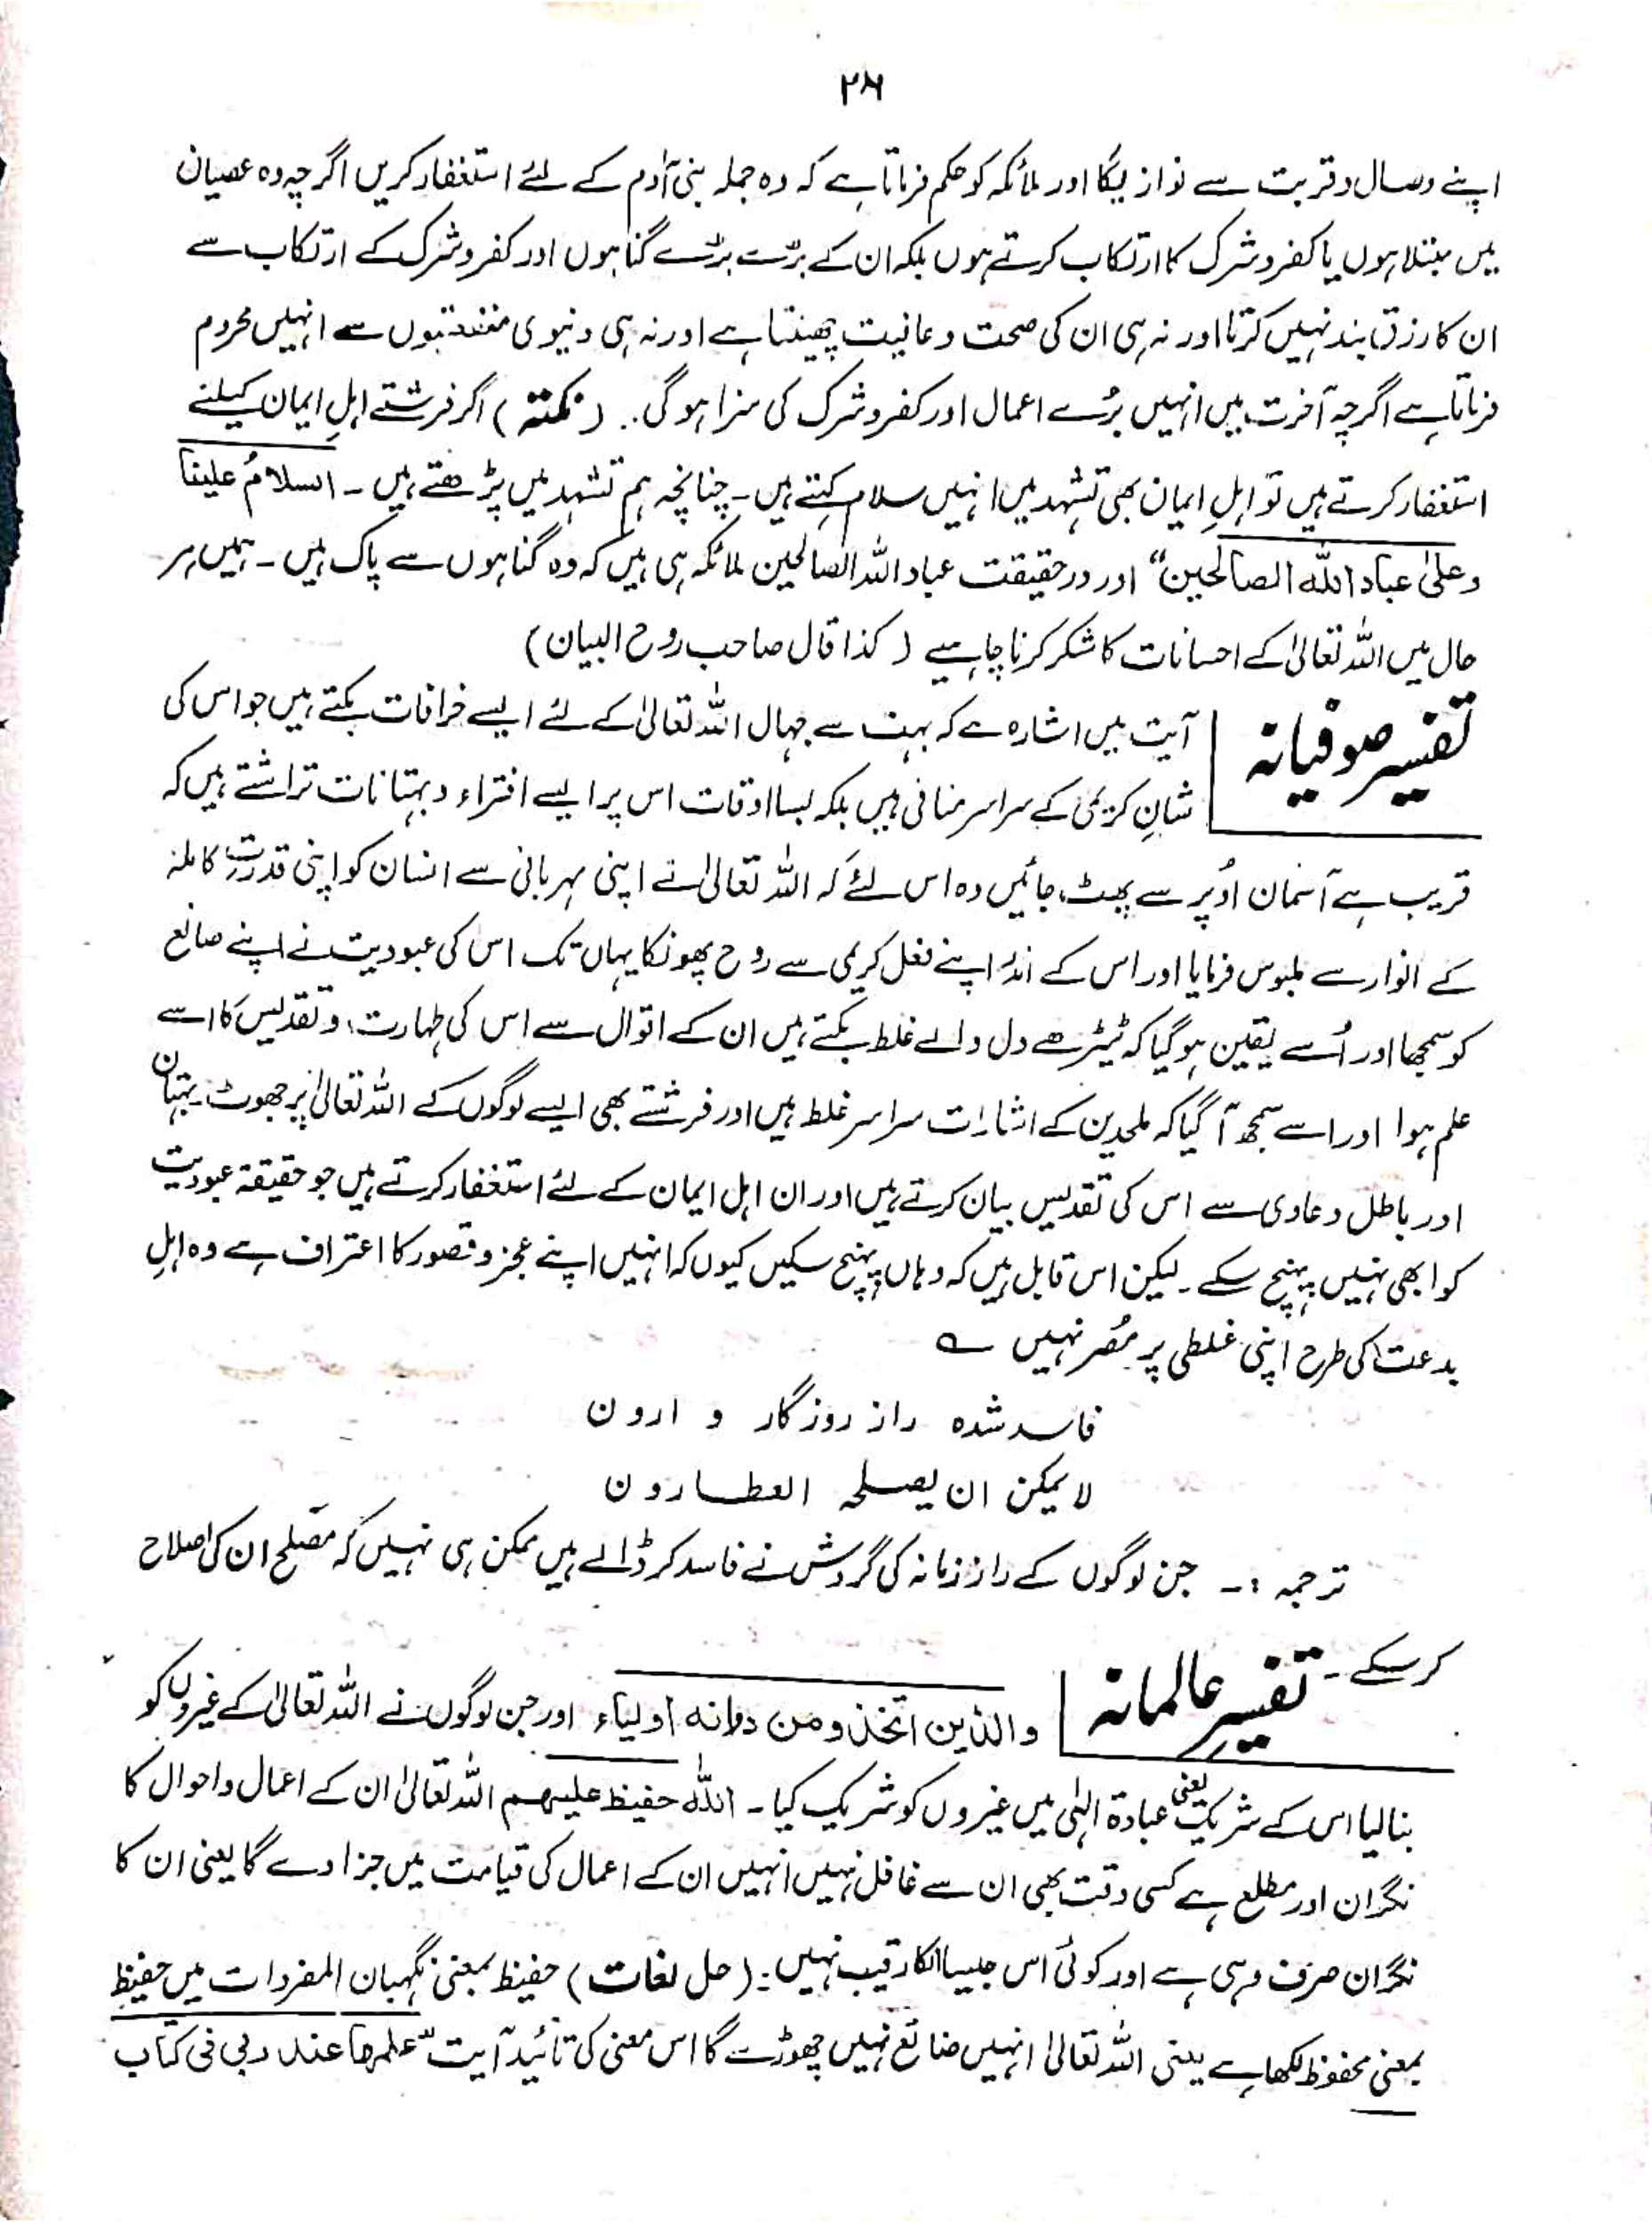 ۲۶
اپنے وصال و قربت سے نوازیگا اور ملائکہ کو حکم فرماتا ہے کہ وہ جملہ بنی آدم کے لئے استغفار کریں اگرچہ وہ عصیان
میں مبتلا ہوں یا کفر و شرک کا ارتکاب کرتے ہوں بلکہ ان کے بڑے بڑے گناہوں اور کفر و شرک کے ارتکاب سے
ان کا رزق بند نہیں کرتا اور نہ ہی ان کی صحت و عافیت چھینتا ہے اور نہ ہی دنیوی منفعتوں سے انہیں محروم
فرماتا ہے اگرچہ آخرت میں انہیں بُرے اعمال اور کفر و شرک کی سزا ہوگی۔۔ (نکتہ) اگر فرشتے اہلِ ایمان کیلئے
استغفار کرتے ہیں تو اہلِ ایمان بھی تشہد میں انہیں سلام کہتے ہیں۔ چنانچہ ہم تشہد میں پڑھتے ہیں۔ السلامُ علینا
وعلیٰ عباد اللہ الصالحین“ اور درحقیقت عباد اللہ الصالحین ملائکہ ہی ہیں کہ وہ گناہوں سے پاک ہیں۔ ہمیں ہر
حال میں اللہ تعالیٰ کے احسانات کا شکر کرنا چاہیے (کذا قال صاحب روح البیان)
تفسیر صوفیانہ آیت میں اشارہ ہے کہ بہت سے جہال اللہ تعالیٰ کے لئے ایسے خرافات بکتے ہیں جو اس کی
شانِ کریمی کے سراسر منافی ہیں بلکہ بسا اوقات اس پر ایسے افتراء و بہتانات تراشتے ہیں کہ
قریب ہے آسمان اُوپر سے پھٹ جائیں وہ اس لئے کہ اللہ تعالیٰ نے اپنی مہربانی سے انسان کو اپنی قدرتِ کاملہ
کے انوار سے ملبوس فرمایا اور اس کے اندر اپنے فضل کریمی سے روح پھونکا یہاں تک اس کی عبودیت نے اپنے صانع
کو سمجھا اور اُسے یقین ہو گیا کہ ٹیڑھے دل والے غلط بکتے ہیں ان کے اقوال سے اس کی طہارت و تقدیس کا اسے
علم ہوا اور اسے سمجھ آ گیا کہ ملحدین کے اشارات سراسر غلط ہیں اور فرشتے بھی ایسے لوگوں کے اللہ تعالیٰ پر جھوٹ بہتان
اور باطل دعاوی سے اس کی تقدیس بیان کرتے ہیں اور ان اہل ایمان کے لئے استغفار کرتے ہیں جو حقیقۃ عبودیت
کو ابھی نہیں پہنچ سکے۔ لیکن اس قابل ہیں کہ وہاں پہنچ سکیں کیوں کہ انہیں اپنے عجز و قصور کا اعتراف ہے وہ اہلِ
بدعت کی طرح اپنی غلطی پر مُصر نہیں ؎
فاسد شدہ راز روزگار و ارون
لا یمکن ان یصلحہ العطارون
ترجمہ :۔ جن لوگوں کے راز زمانہ کی گردش نے فاسد کر ڈالے ہیں ممکن ہی نہیں کہ مصلح ان کی اصلاح
کر سکے۔
تفسیرِ عالمانہ والذین اتخذو من دونہ اولیاء اور جن لوگوں نے اللہ تعالیٰ کے غیروں کو
بنا لیا اس کے شریک یعنی عبادۃ الہٰی میں غیروں کو شریک کیا۔ اللہ حفیظ علیہم اللہ تعالیٰ ان کے اعمال و احوال کا
نگران اور مطلع ہے کسی وقت بھی ان سے غافل نہیں انہیں ان کے اعمال کی قیامت میں جزا دے گا یعنی ان کا
نگران صرف وہی ہے اور کوئی اس جیسا انکا رقیب نہیں۔: (حل لغات) حفیظ بمعنی نگہبان المفردات میں حفیظ
بمعنی محفوظ لکھا ہے یعنی اللہ تعالیٰ انہیں ضائع نہیں چھوڑے گا اس معنی کی تائید آیت ”علمھا عند ربی فی کتاب